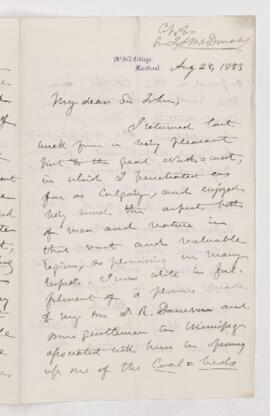 McGill College,
Montreal.
Aug 28, 1883
My dear Sir John,
I returned last
week from a very pleasant
visit to the great North-west,
in which I penetrated as
far as Calgary, and enjoyed
very much the aspects both
of men and nature in
that vast and valuable
region, so promising in many
respects. I now write in ful-
filment of a promise made
to my son R. Dawson and
some gentlemen in Winnipeg
associated with him in opening
up one of the Coal-beds